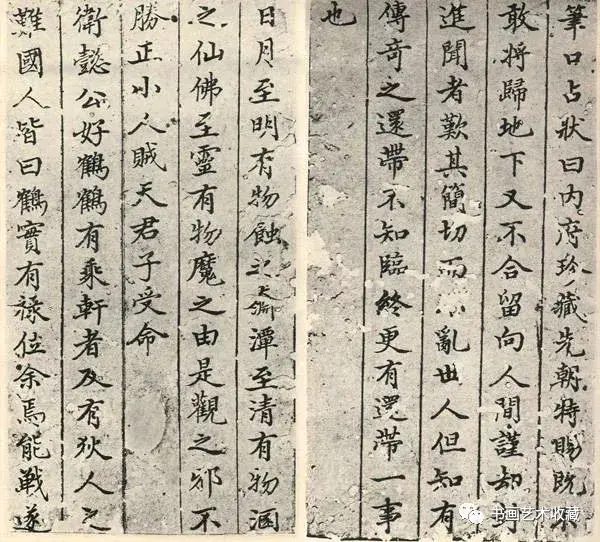 筆口占狀曰内府珍藏先朝特賜既
敢將歸地下又不合留向人間謹却封
進聞者歎其簡切而亂世人但知有
傳奇之還帶不知臨終更有還帶一事
也
日月至明有物蝕之潭至清有物溷
之仙佛至靈有物魔之由是觀之邪不
勝正小人賊天君子受命
衛懿公好鶴鶴有乘軒者及有狄人之
難國人皆曰鶴實有祿位余焉能戰遂
书画艺术收藏